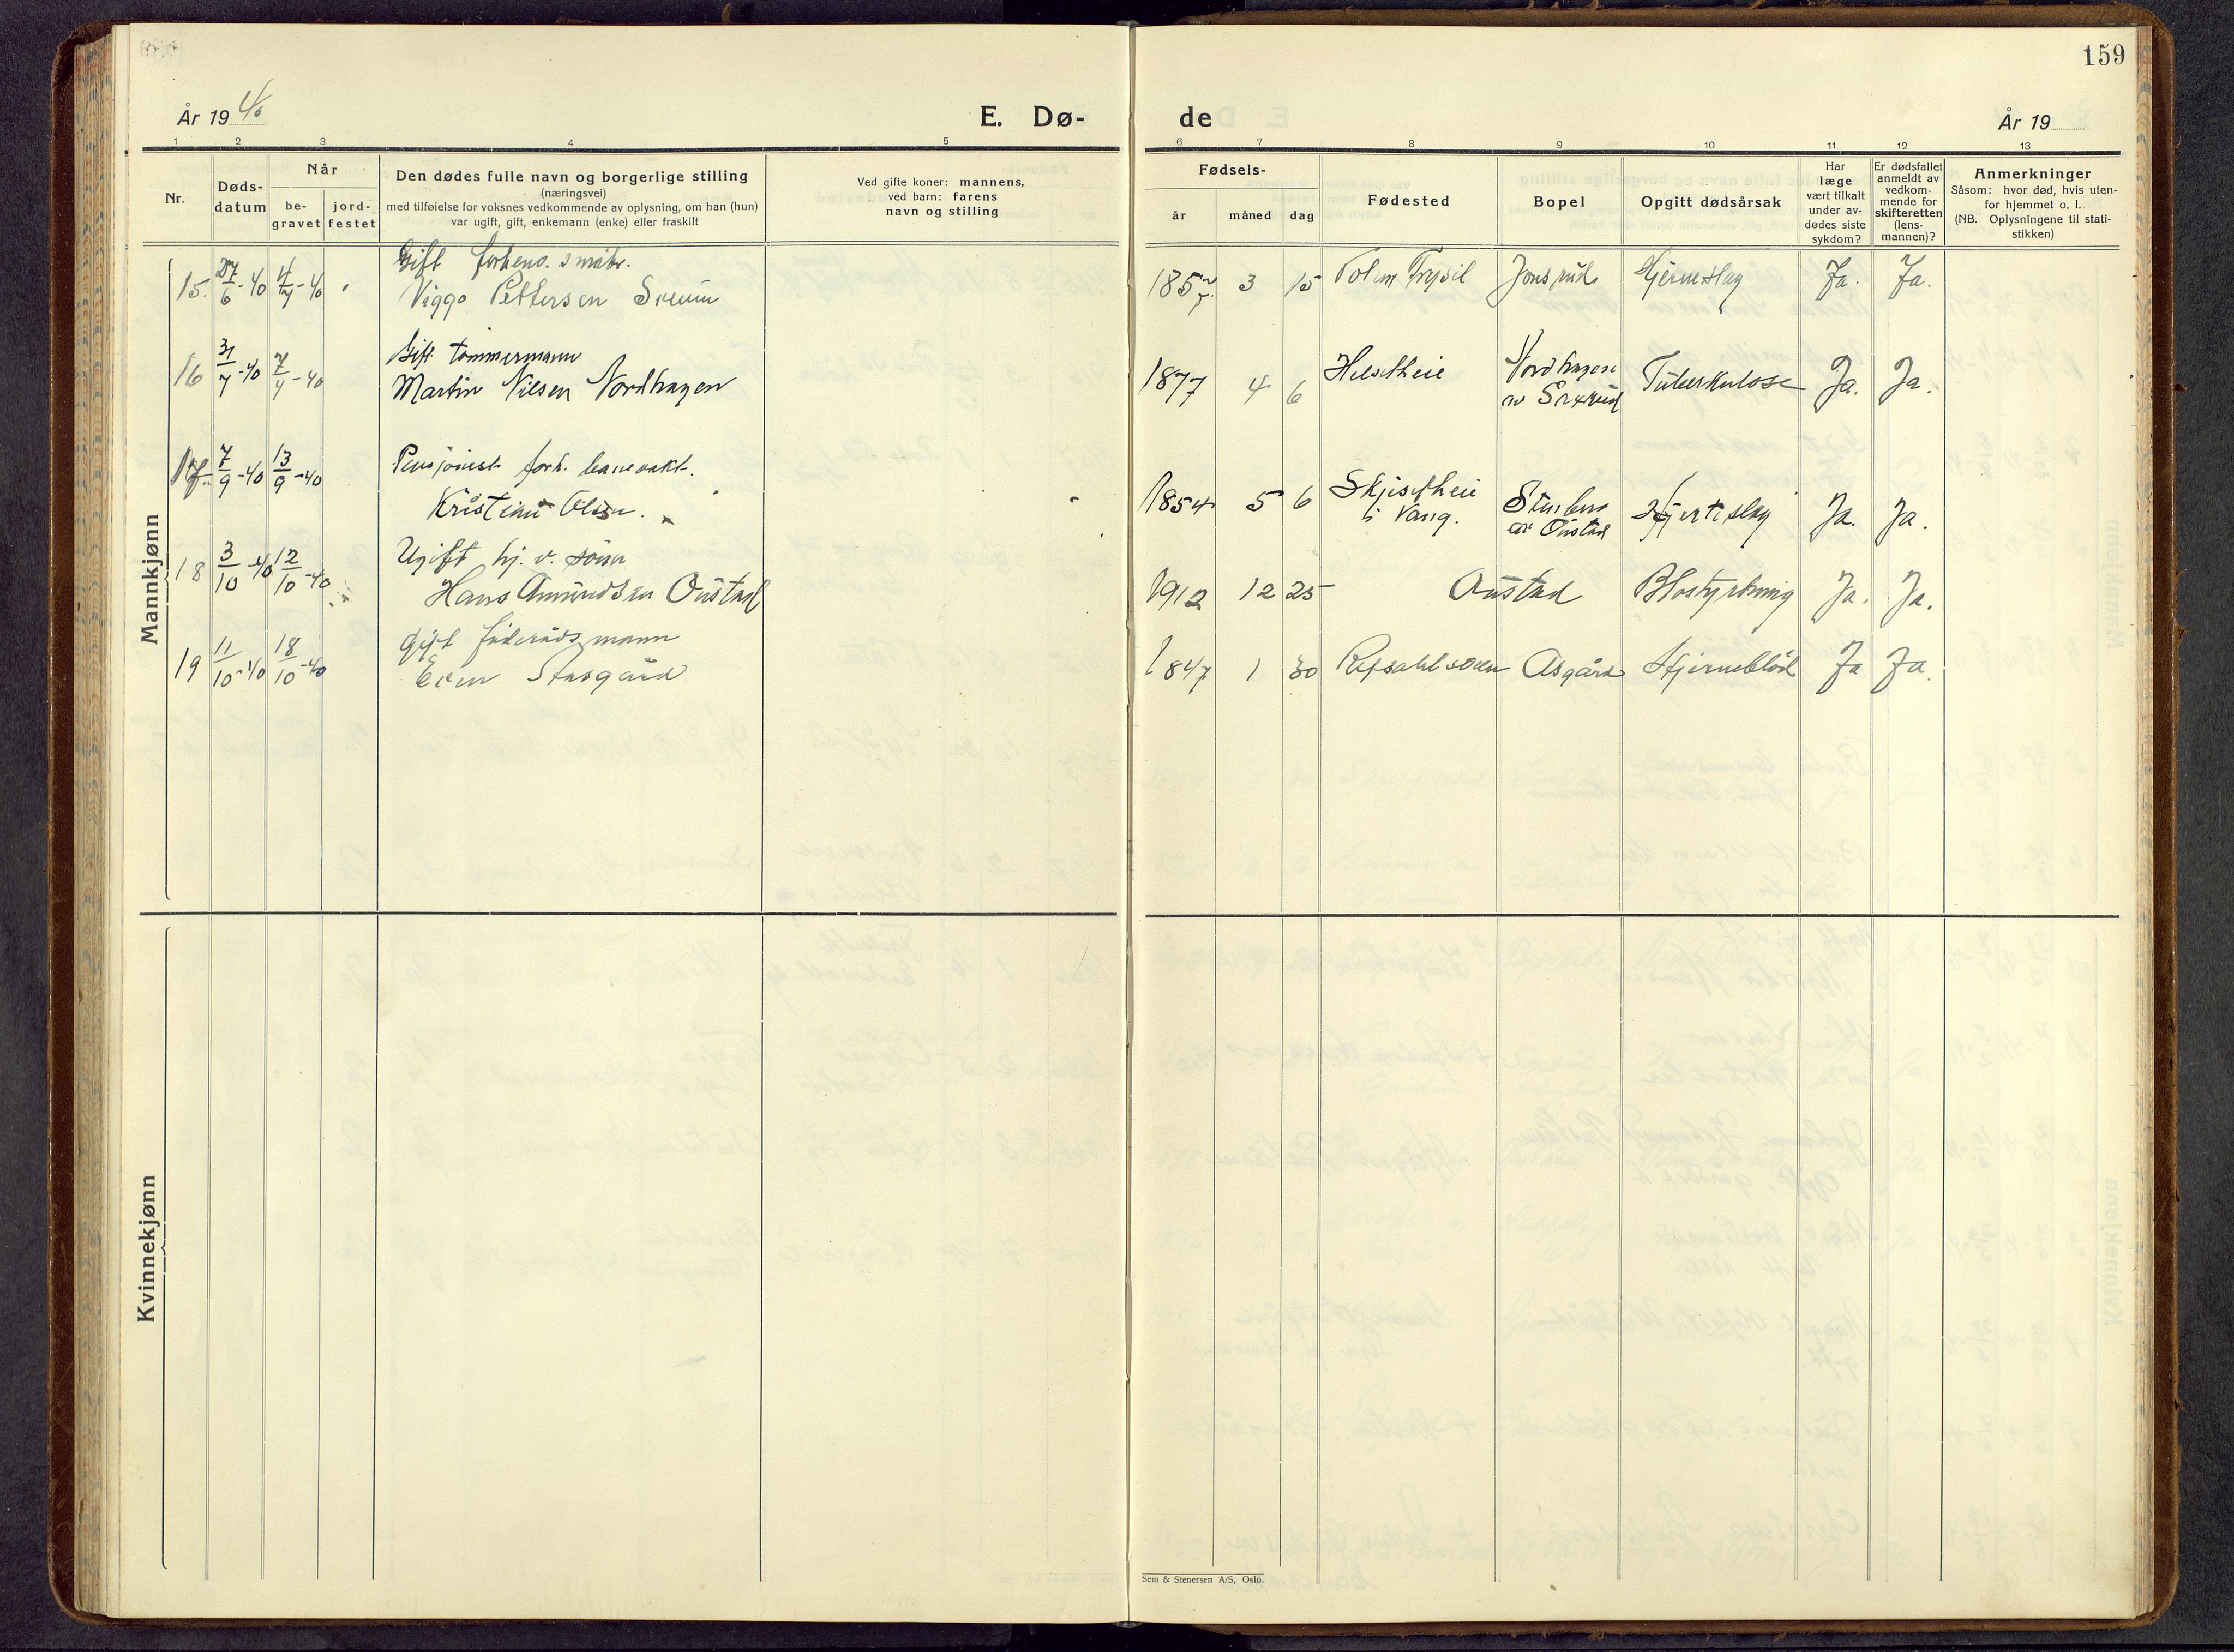 159
År 19 40
E. Dø-
de
År 19
1 2 3 4 5
6 7 8 9 10 11 12 13
Nr.
Døds-
datum
Når
be-
gravet
jord-
festet
Den dødes fulle navn og borgerlige stilling
(næringsvei)
med tilføielse for voksnes vedkommende av oplysning, om han (hun)
var ugift, gift, enkemann (enke) eller fraskilt
Ved gifte koner: mannens,
ved barn: farens
navn og stilling
Fødsels-
år
måned
dag
Fødested
Bopel
Opgitt dødsårsak
Har
læge
vært tilkalt
under av-
dødes siste
sykdom?
Er dødsfallet
anmeldt av
vedkom-
mende for
skifteretten
(lens-
mannen)?
Anmerkninger
Såsom: hvor død, hvis uten-
for hjemmet o. l.
(NB. Oplysningene til stati-
stikken)
Mannkjønn
Gift forhenv. småbr.
15. 27/6-40 4/7-40 Viggo Pettersen 185 3 15 Trysil Jonsrud Hjerneslag Ja. Ja.
Gift tømmermann
16 7-40 7/7-40 Martin Nilsen Nordhagen 1877 4 6 Helsetheie Nordhagen
av Saxrud Tuberkulose Ja. Ja.
Pensjonist forh. banevakt.
17 7/9-40 13/9-40 Kristian Olsen. 1854 5 6 Skjesetheie
i Vang. Stenberg
av Oustad Hjerteslag Ja. Ja.
Ugift hj. v. sønn
18 3/10-40 12/10-40 Hans Amundsen Oustad 1912 12 25 Oustad Blodstyrtning Ja. Ja.
Gift føderådsmann
19 11/10-40 18/10-40 Even 1847 1 30 Asgård Hjerneblød Ja Ja.
Kvinnekjønn
Sem & Stenersen A/S, Oslo.